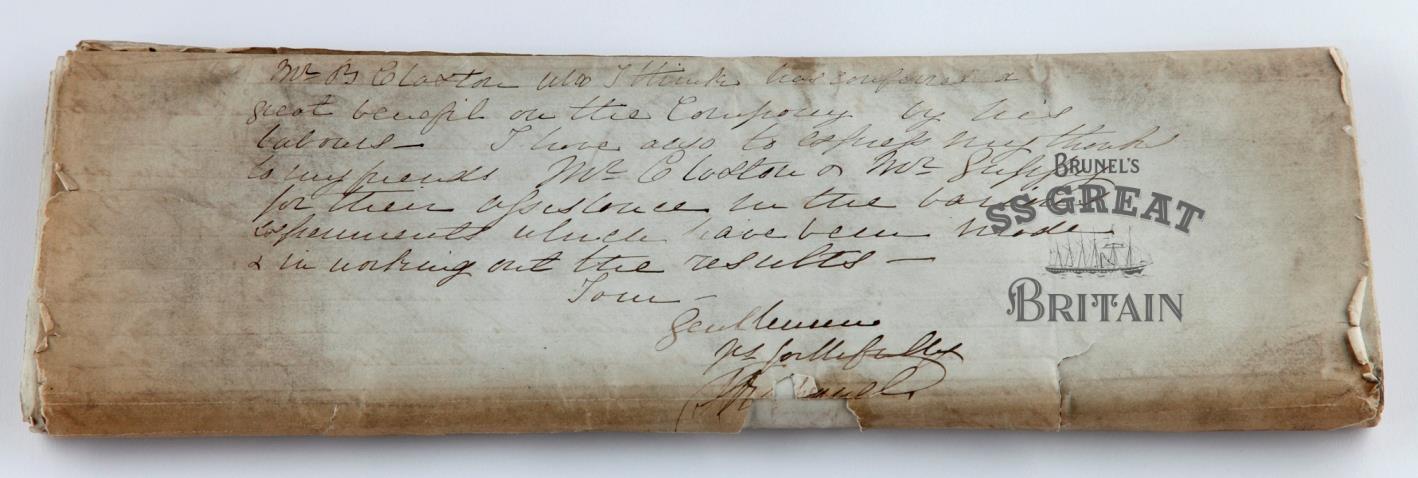 Mr B Claxton who I think has conferred a
great benefit on the Company by his
labours — I have also to express my thanks
to my friends Mr Claxton & Mr Guppy
for their assistance in the various
experiments which have been made
& in working out the results —
I am —
Gentlemen
BRUNEL'S
SS GREAT
BRITAIN